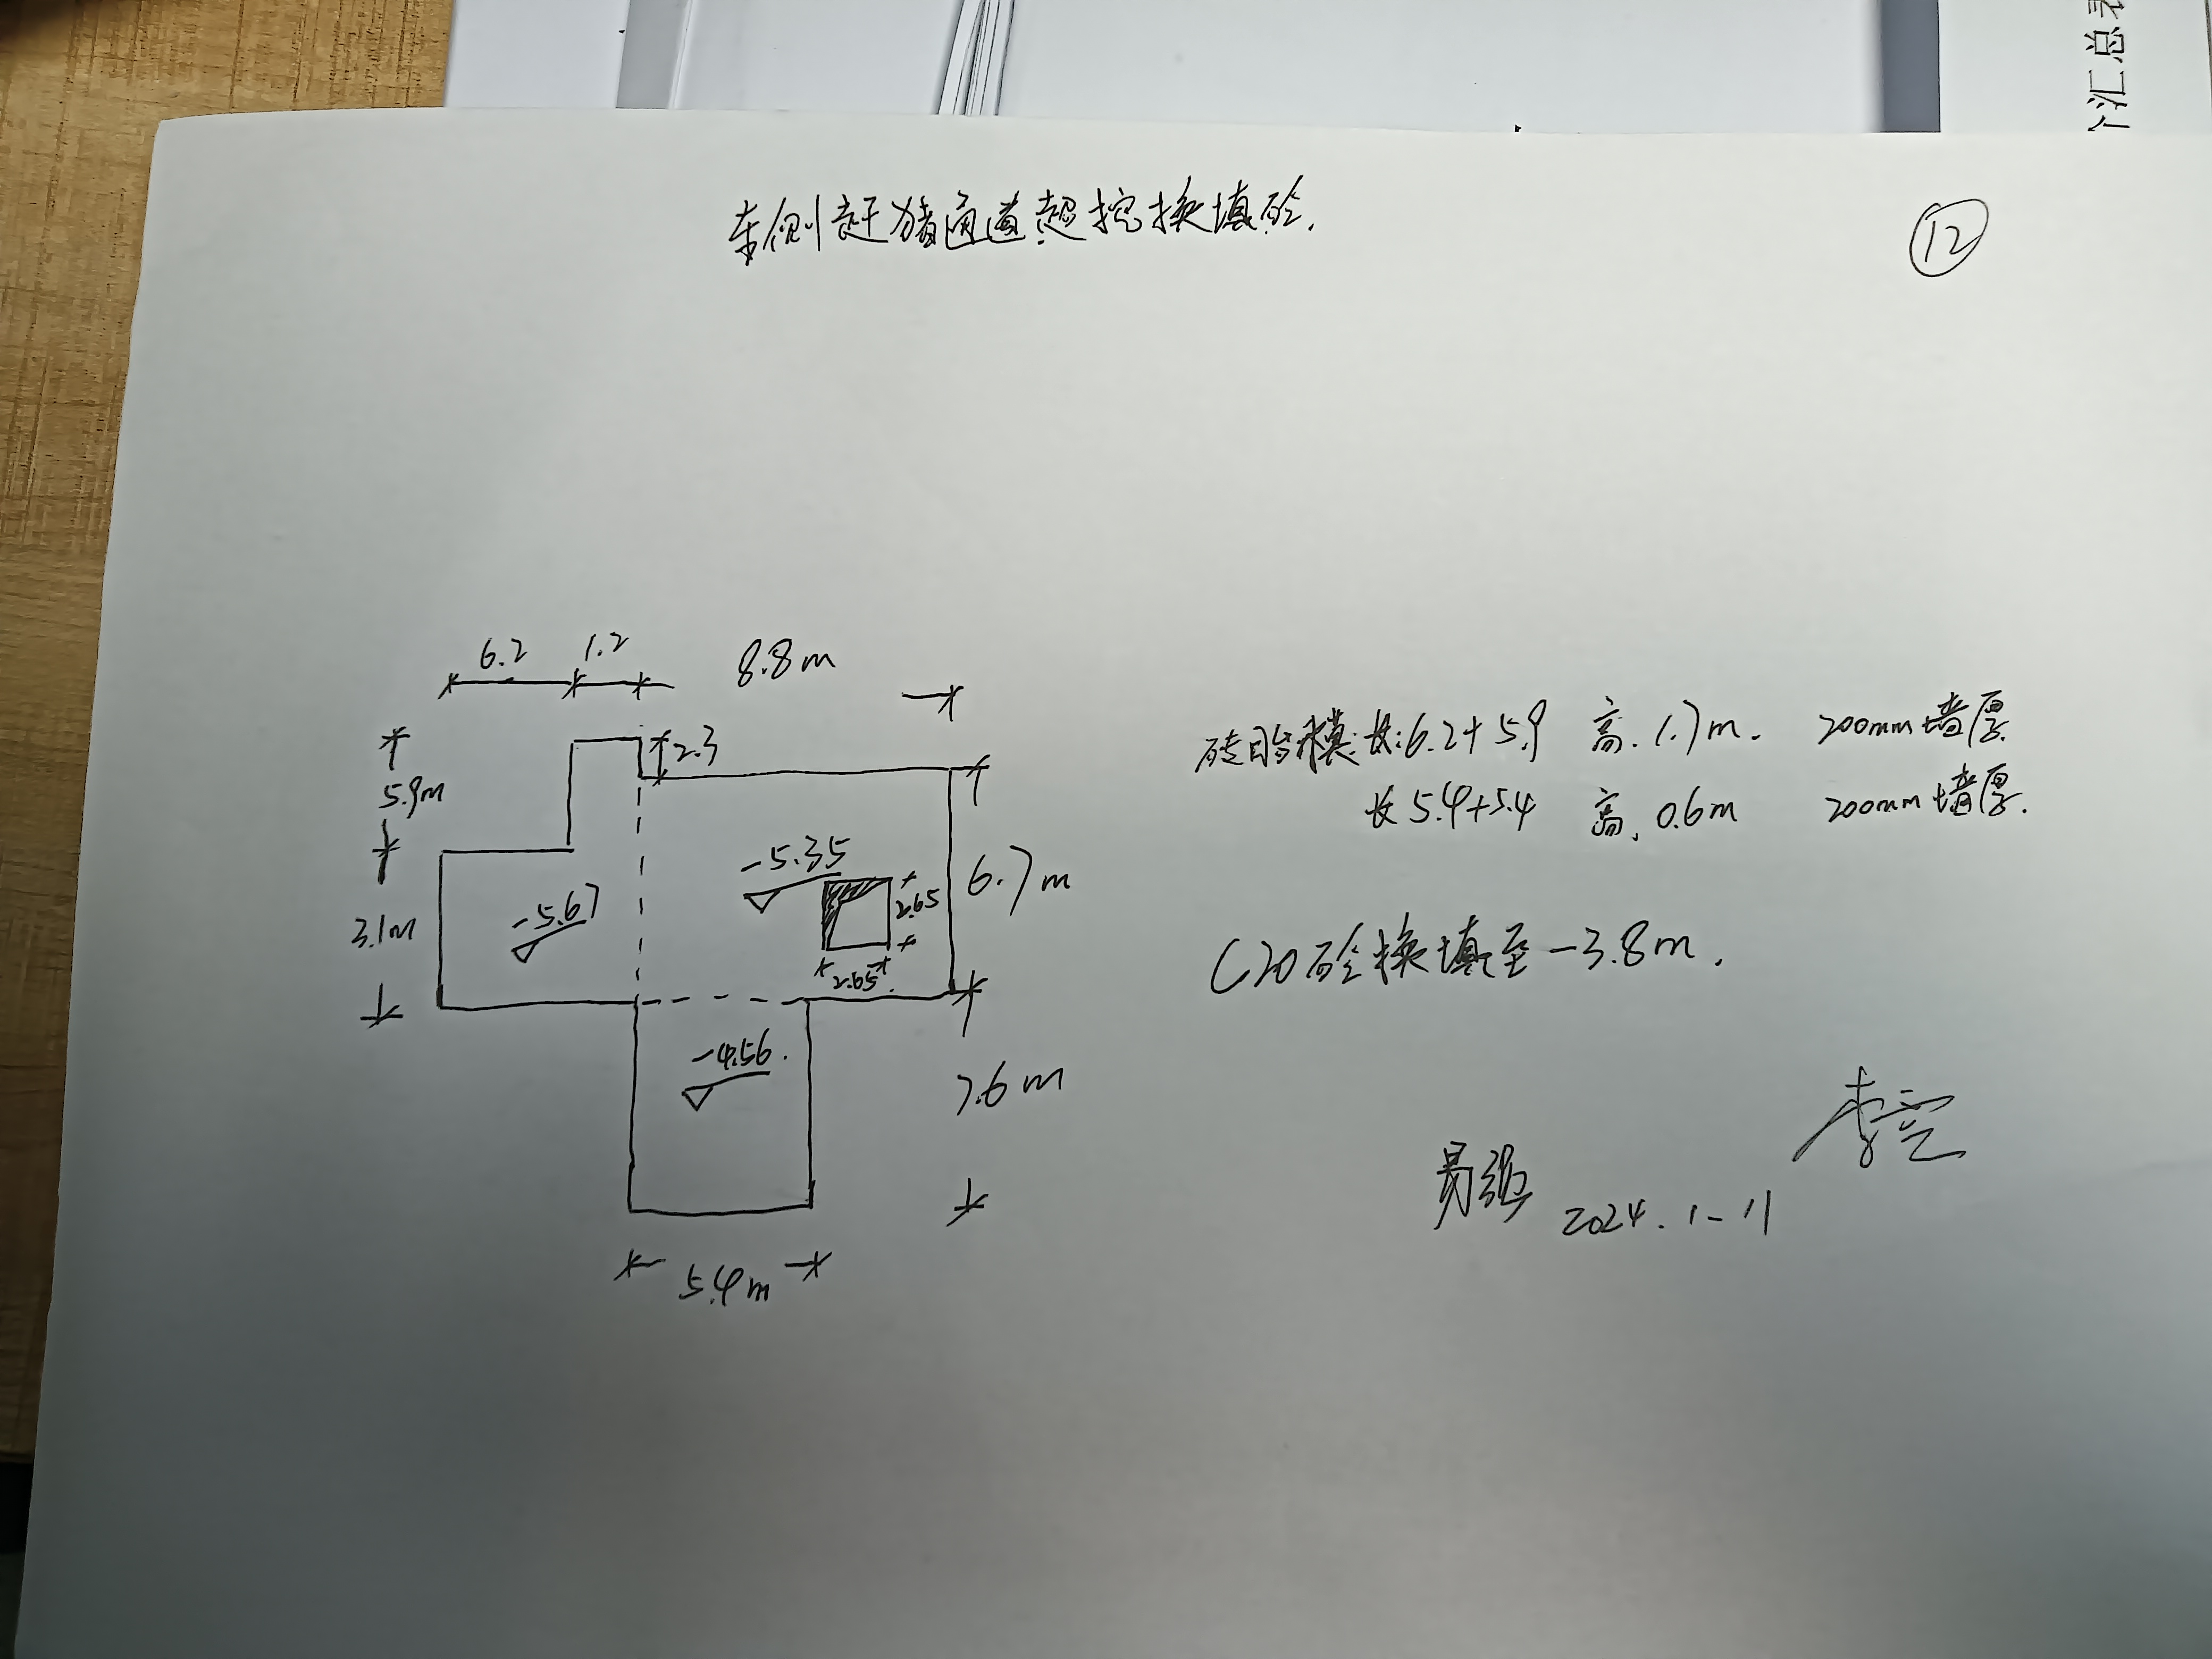 个汇总表
东侧赶猪通道超挖换填砼.
12
6.2 1.2 8.8m
2.3
5.9m
-5.35
6.7m
2.65
3.1m
-5.67
2.65
-4.56.
7.6m
5.4m
砖胎模:长:6.2+5.9 高.1.7m. 200mm墙厚
长5.4+5.4 高.0.6m 200mm墙厚.
C20砼换填至-3.8m.
易强 2024.1-11